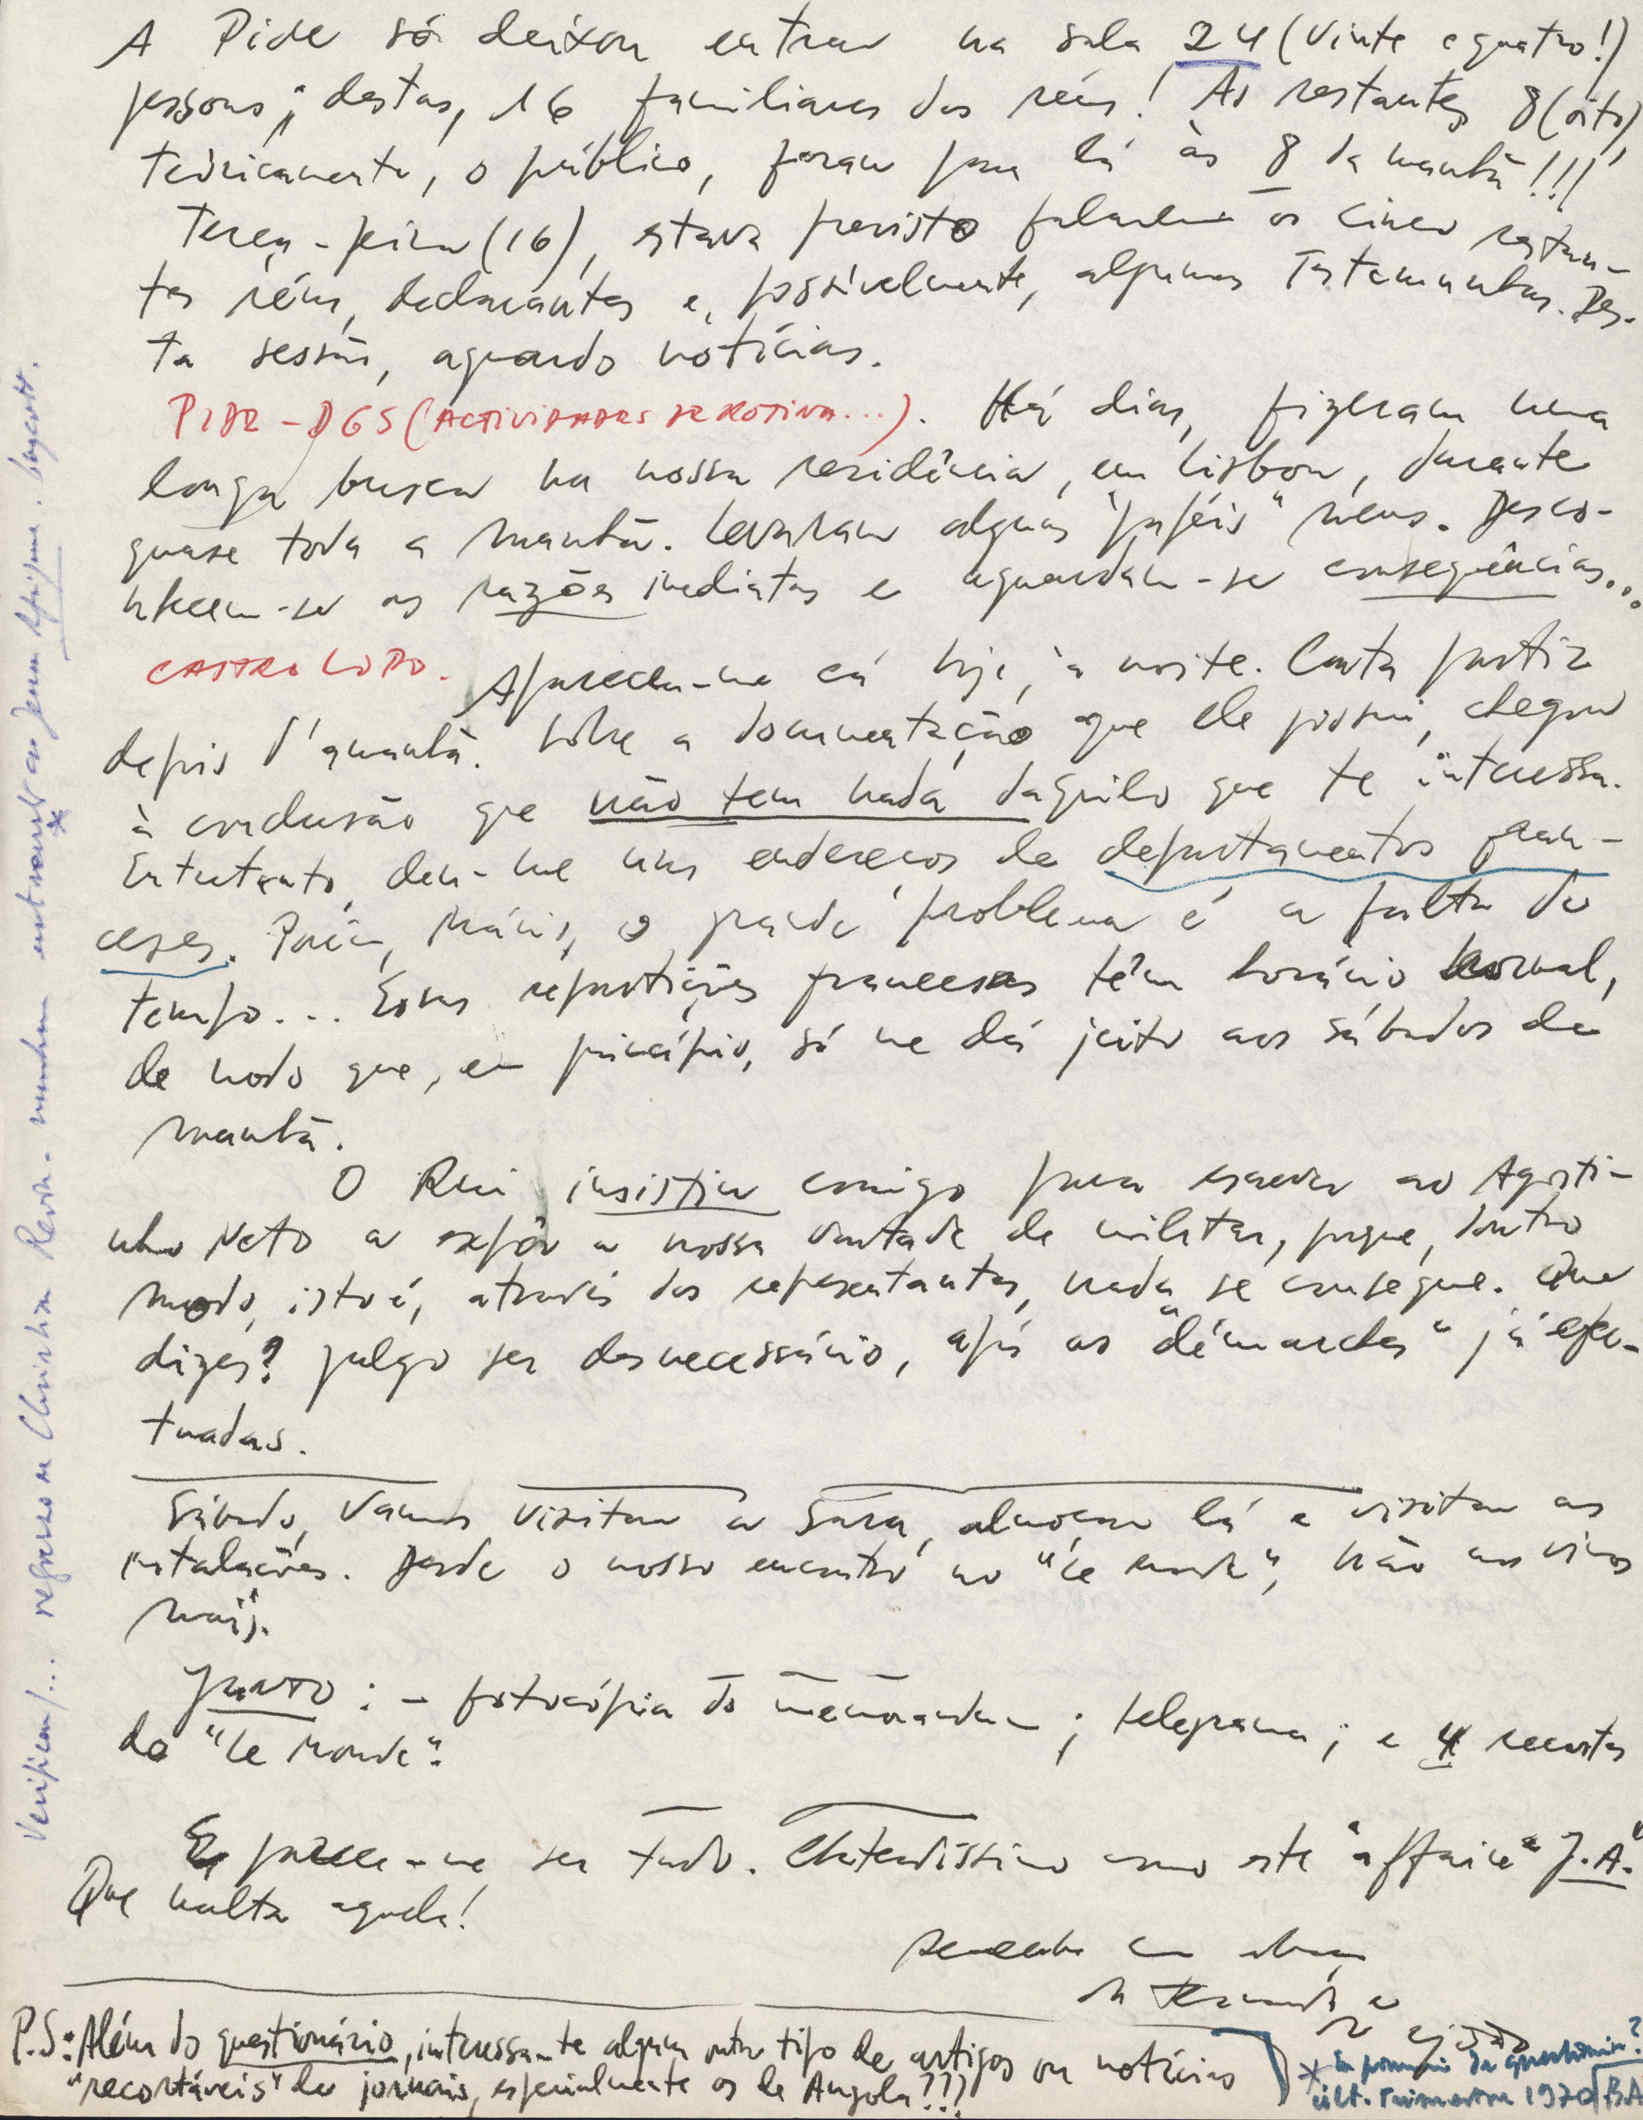 A Pide só deixou entrar na sala 24 (vinte e quatro!)
pessoas; destas, 16 familiares dos réus! As restantes 8 (oito),
teòricamente, o público, foram para lá às 8 da manhã!!!
Terça-feira (16), estava previsto falarem os cinco restan-
tes réus, declarantes e, possìvelmente, algumas testemunhas. Des-
ta sessão, aguardo notícias.
PIDE-DGS (ACTIVIDADES DE ROTINA...). Há dias, fizeram uma
longa busca na nossa residência, em Lisboa, durante
quase toda a manhã. Levaram alguns "papéis" meus. Desco-
nhecem-se as razões imediatas e aguardam-se consequências...
CASTRO LOPO. Apareceu-me cá hoje, à noite. Conta partir
depois d'amanhã. Sôbre a documentação que ele possui, chegou
à conclusão que não tem nada daquilo que te interessa.
Entretanto, deu-me uns endereços de departamentos fran-
ceses. Porém, Mário, o grande problema é a falta de
tempo... Essas repartições francesas têm horário normal,
de modo que, em princípio, só me dá jeito aos sábados de
manhã.
O Rui insistiu comigo para escrever ao Agosti-
nho Neto a expôr a nossa vontade de militar, porque, doutro
modo, isto é, através dos representantes, nada se consegue. Que
dizes? Julgo ser desnecessário, após as "démarches" já efec-
tuadas.
Sábado, vamos visitar a Sara, almoçar lá e visitar as
instalações. Desde o nosso encontro no "Le Monde", não nos vimos
mais.
JUNTO: - fotocópia do memorandum; telegrama; e 4 recortes
do "Le Monde".
E parece-me ser tudo. Chateadíssimo com este "affaire" J.A."
Que malta aquela!
Recebe um abraço
da Fernanda e
P.S: Além do questionário, interessa-te algum outro tipo de artigos ou notícias
"recortáveis" de jornais, especialmente os de Angola???
* da questionário?
últ. 1970 BA
Verificar/... regresso Christian Revista. entrevista ao Jeune Afrique. boycott.
*